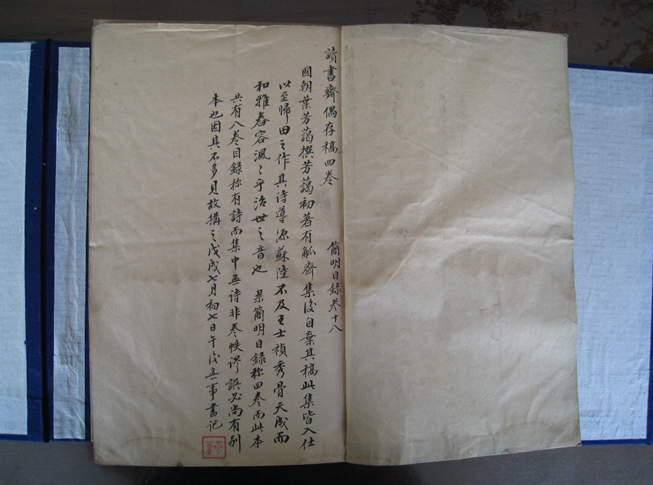 讀書齋偶存稿四卷 簡明目錄卷十八
國朝葉芳藹撰芳藹初著有觚齋集後自棄其稿此集皆入仕
以至歸田之作其诗導源蘇陸不及王士禎秀骨天成而
和雅舂容渢〻乎治世之音也 案簡明目錄称四卷而此本
共有八卷目錄称有詩而集中無诗非卷帙謬誤必尚有別
本也因其不多見故購之戊戌七月初七日午後無事書记